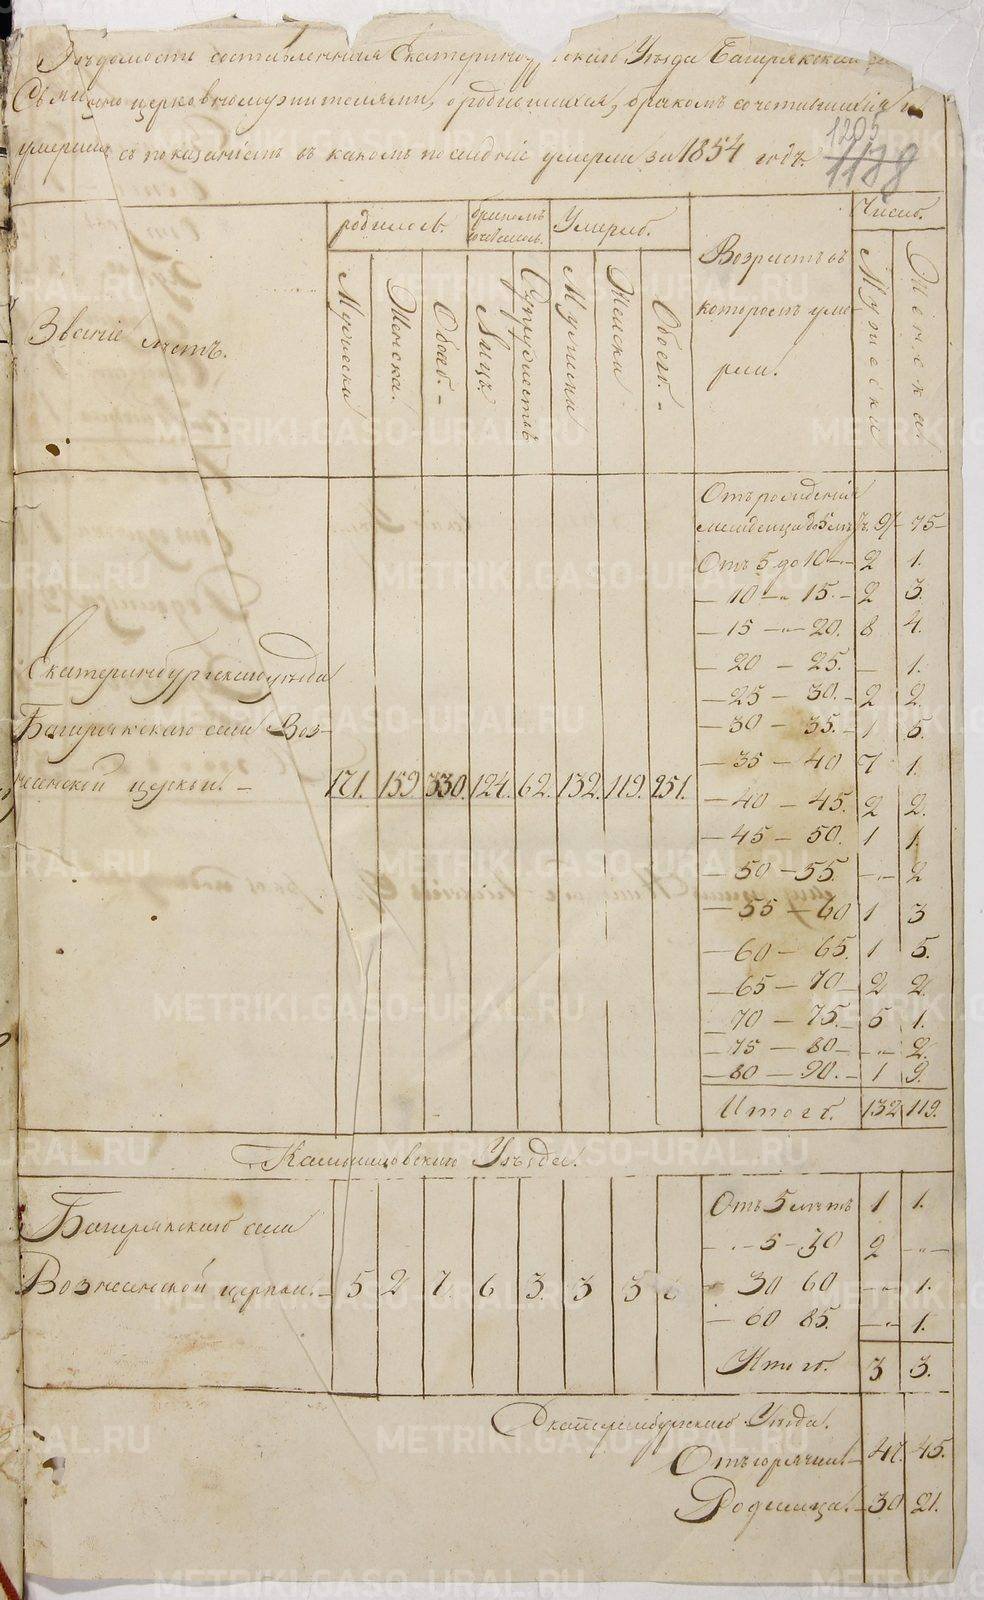 Вѣдомость составленная Екатеринбургскаго Уѣзда Багарякскаго
Священно церковнослужителями, о родившихся, бракомъ сочетавшихся и
умершихъ съ показаніемъ въ какомъ послѣдніе умерли за 1854 годъ.
1205
1188
Званіе мѣстъ.
родилось.
бракомъ сочеталось.
Умерло.
Возрастъ въ
которомъ уме
рли.
Число.
Мужеска
Женска.
Обоего.
Лицъ
Супружествъ
Мужеска
Женска
Обоего.
Мужеска
Женска.
Отъ рожденія
младенца до 5 лѣтъ 97 75
Отъ 5 до 10 - 2 1.
- 10 - " 15. - 2 3.
- 15 - " - 20. 8 4.
- 20 - 25. - 1.
- 25 - 30. - 2 2.
- 30 - 35. - 1 5.
- 35 - 40 7 1.
- 40 - 45. 2 2.
- 45 - 50. 1 1.
- 50 - 55. - " - 2
- 55 - 60 1 3
- 60 - 65. 1 5.
- 65 - 70 - 2 2
- 70 - 75. - 5 1.
- 75 - 80 - - " - 2.
- 80 - 90. - 1 9.
Итого. 132 119.
Екатеринбургскаго уѣзда
Багарякскаго села Воз-
несенской церкви. - 171. 159 330. 124. 62. 132. 119. 251.
Камышловскаго Уѣзда.
Багарякскаго села
Вознесенской церкви. - 5 2 7. 6 3. 3 3 6
Отъ 5 лѣтъ 1 1.
- " - 5 - 30 2 - " -
- 30 60 - " - 1.
- 60 85. - " - 1.
Итого. 3 3.
Екатеринбургскаго Уѣзда.
Отъ горячки - 47. 45.
Родимца. - 30 21.